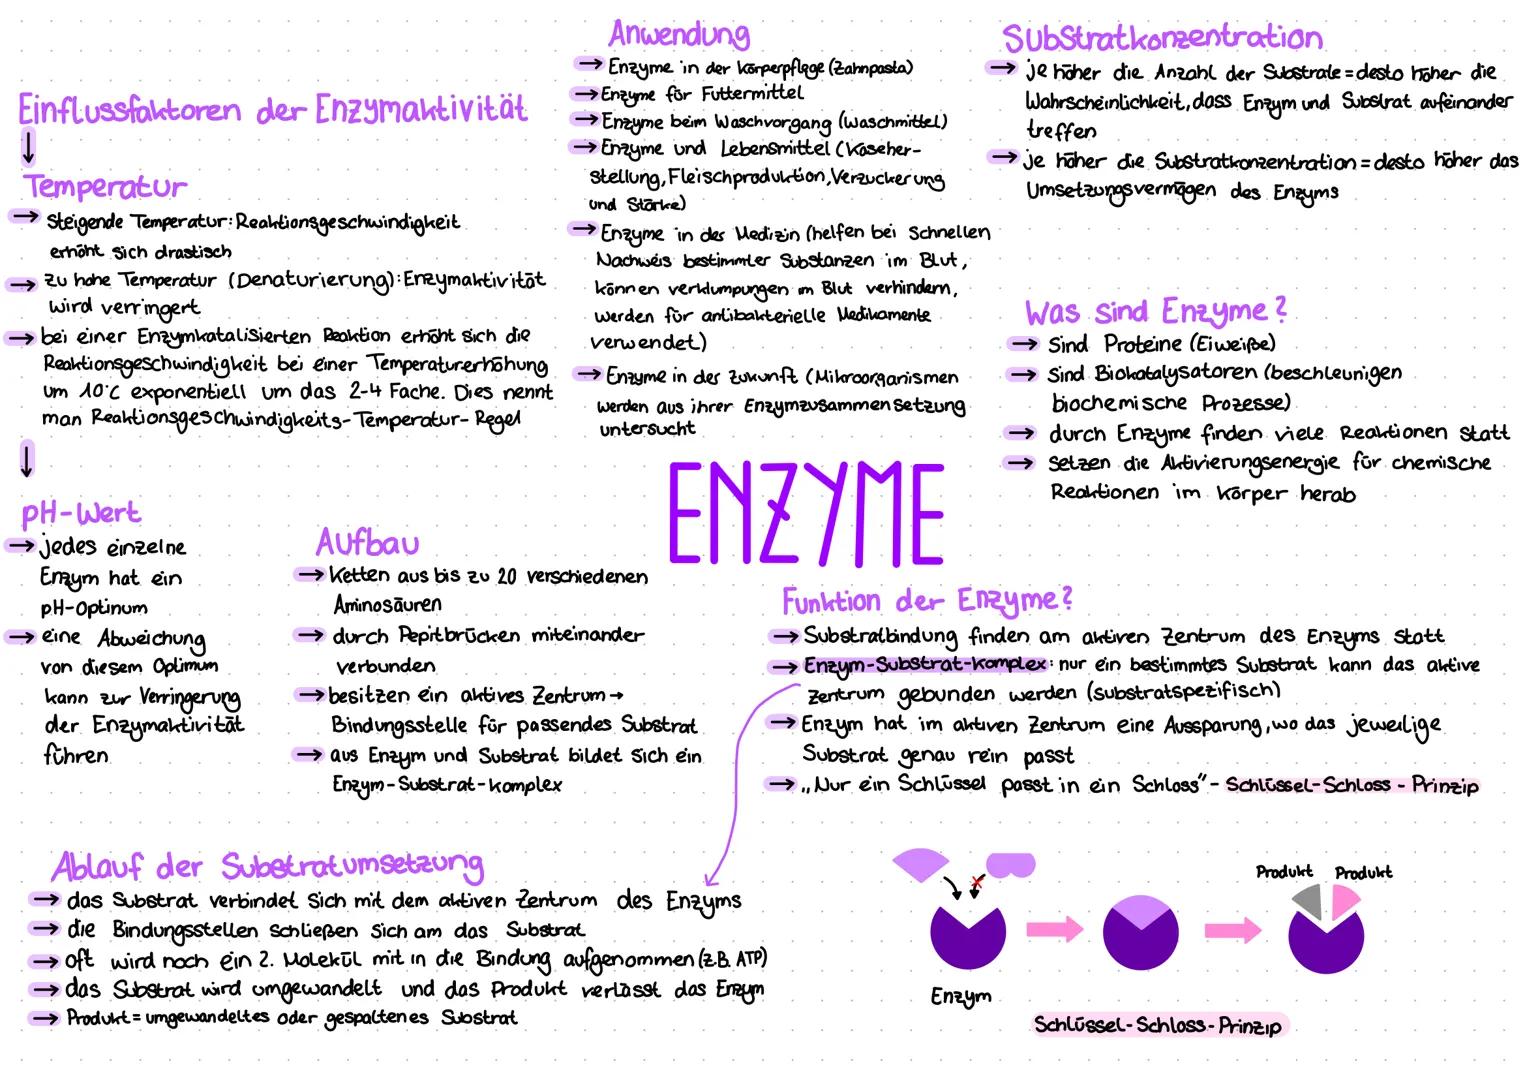 Einflussfaktoren der Enzymaktivität
↓
Temperatur
→ Steigende Temperatur: Reaktionsgeschwindigkeit
erhöht sich drastisch
→ zu hohe Temperatur (Denaturierung): Enzymaktivität
wird verringert
→ bei einer Enzymkatalisierten Reaktion erhöht sich die
Reaktionsgeschwindigkeit bei einer Temperaturerhöhung
um 10°C exponentiell um das 2-4 Fache. Dies nennt
man Reaktionsgeschwindigkeits-Temperatur-Regel
↓
pH-Wert
→ jedes einzelne
Enzym hat ein
pH-Optinum
→ eine Abweichung
von diesem Optimum
kann zur Verringerung
der Enzymaktivität
führen
Anwendung
→ Enzyme in der Körperpflege (Zahnpasta)
→ Enzyme für Futtermittel
→ Enzyme beim Waschvorgang (Waschmittel)
→ Enzyme und Lebensmittel (Käseher-
stellung, Fleischproduktion, Verzuckerung
und Stärke)
→ Enzyme in der Medizin (helfen bei Schnellen
Nachweis bestimmter Substanzen im Blut,
können verklumpungen im Blut verhindern,
werden für antibakterielle Medikamente
verwendet)
→ Enzyme in der Zukunft (Mikroorganismen
werden aus ihrer Enzymzusammensetzung
untersucht
Substratkonzentration
→ je höher die Anzahl der Substrate = desto höher die
Wahrscheinlichkeit, dass Enzym und Substrat aufeinander
treffen
→ je höher die Substratkonzentration = desto höher das
Umsetzungsvermögen des Enzyms
Was sind Enzyme?
→ Sind Proteine (Eiweiße)
→ Sind Biokatalysatoren (beschleunigen
biochemische Prozesse)
→ durch Enzyme finden viele Reaktionen statt
→ Setzen die Aktivierungsenergie für chemische
Reaktionen im Körper herab
ENZYME
Aufbau
→ Ketten aus bis zu 20 verschiedenen
Aminosäuren
→ durch Pepitbrücken miteinander
verbunden
→ besitzen ein aktives Zentrum →
Bindungsstelle für passendes Substrat
→ aus Enzym und Substrat bildet sich ein
Enzym-Substrat-Komplex
Funktion der Enzyme?
→ Substratbindung finden am aktiven Zentrum des Enzyms statt
→ Enzym-Substrat-Komplex: nur ein bestimmtes Substrat kann das aktive
Zentrum gebunden werden (substratspezifisch)
→ Enzym hat im aktiven Zentrum eine Aussparung, wo das jeweilige
Substrat genau rein passt
→ „Nur ein Schlüssel passt in ein Schloss" - Schlüssel-Schloss-Prinzip
Ablauf der Substratumsetzung
→ das Substrat verbindet Sich mit dem aktiven Zentrum des Enzyms
→ die Bindungsstellen schließen sich am das Substrat
→ oft wird noch ein 2. Molekül mit in die Bindung aufgenommen (z.B. ATP)
→ das Substrat wird umgewandelt und das Produkt verlässt das Enzym
→ Produkt = umgewandeltes oder gespaltenes Substrat
Produkt Produkt
Enzym
Schlüssel-Schloss-Prinzip